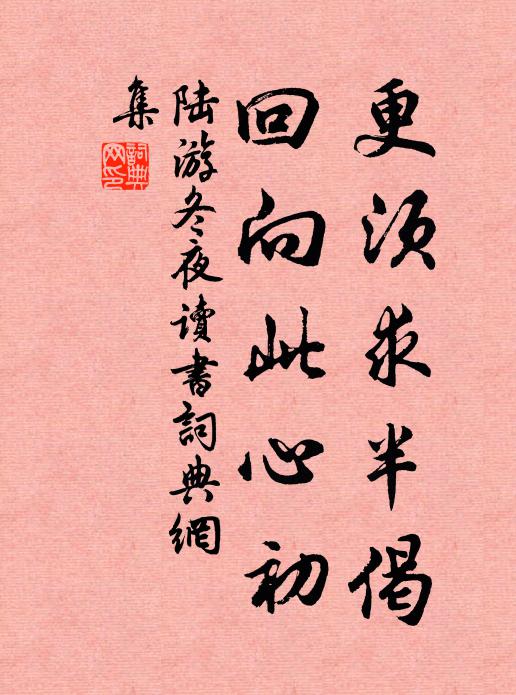 更須求半偈
回向此心初
陸游冬夜讀書詞典網
集
詞典網印